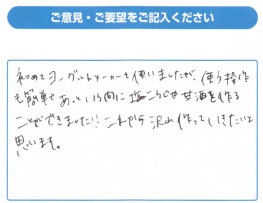 ご意見・ご要望をご記入ください
初めてヨーグルトメーカーを使いましたが、使う操作
も簡単であっという間に塩こうじや甘酒を作る
ことができました!!これから沢山作っていきたいと
思います。